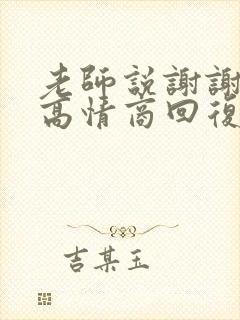 老師説謝謝
高情商回復
吉某玉